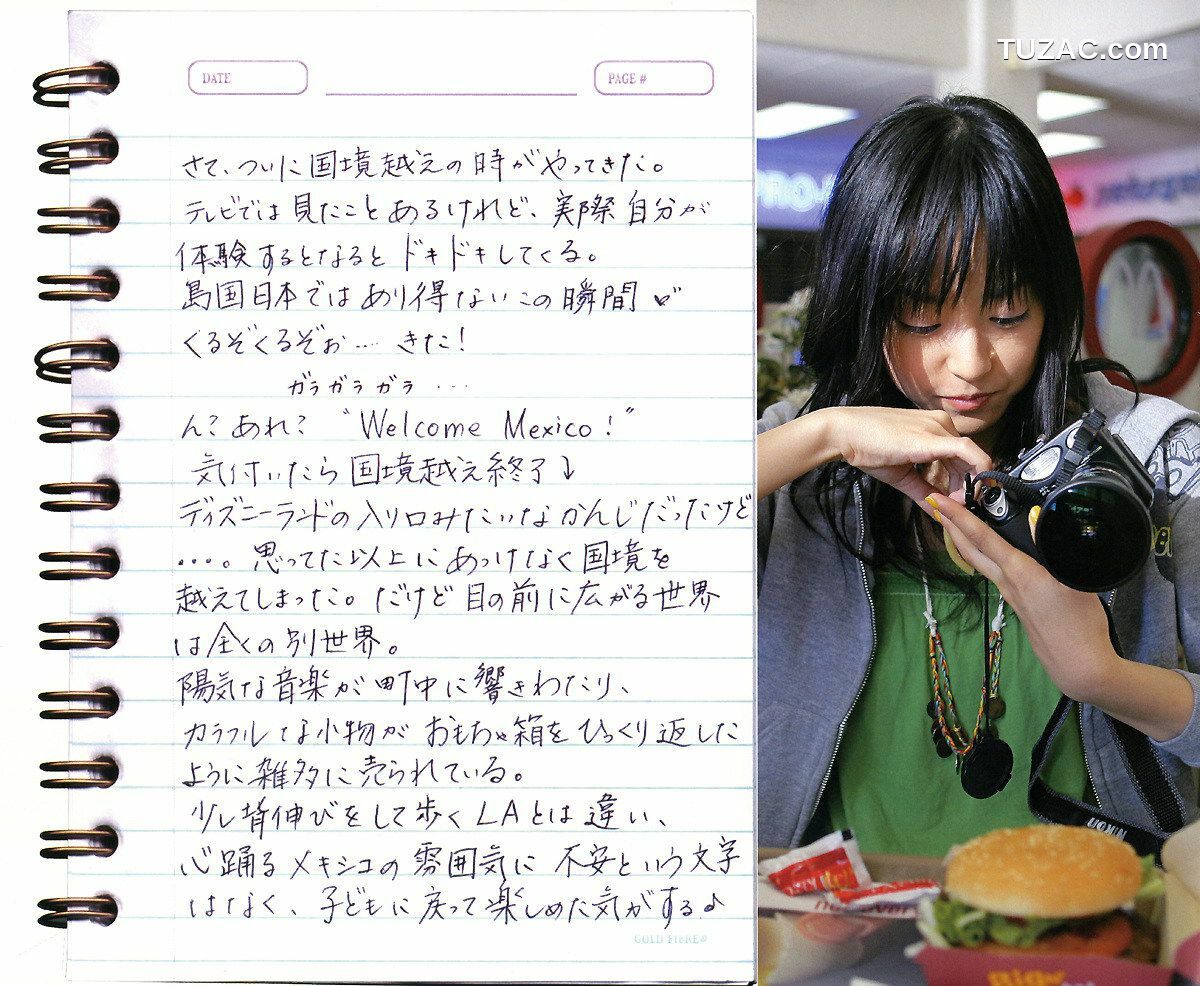 TUZAC.com
DATE
PAGE #
さて、ついに国境越えの時がやってきた。
テレビでは見たことあるけれど、実際自分が
体験するとなるとドキドキしてくる。
島国日本ではあり得ないこの瞬間♡
くるぞくるぞぉ… きた!
ガラガラガラ…
ん?あれ? "Welcome Mexico!"
気付いたら国境越え終了↓
ディズニーランドの入り口みたいなかんじだったけど
…。思ってた以上にあっけなく国境を
越えてしまった。だけど目の前に広がる世界
は全くの別世界。
陽気な音楽が町中に響きわたり、
カラフルな小物がおもちゃ箱をひっくり返した
ように雑多に売られている。
少し背伸びをして歩くLAとは違い、
心踊るメキシコの雰囲気に不安という文字
はなく、子どもに戻って楽しめた気がする♪
GOLD FIBRE®
NIKON